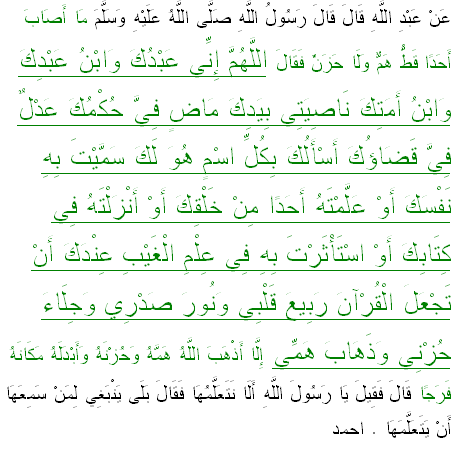 عَنْ عَبْدِ اللَّهِ قَالَ قَالَ رَسُولُ اللَّهِ صَلَّى اللَّهُ عَلَيْهِ وَسَلَّمَ مَا أَصَابَ
أَحَدًا قَطُّ هَمٌّ وَلَا حَزَنٌ فَقَالَ اللَّهُمَّ إِنِّي عَبْدُكَ وَابْنُ عَبْدِكَ
وَابْنُ أَمَتِكَ نَاصِيَتِي بِيَدِكَ مَاضٍ فِيَّ حُكْمُكَ عَدْلٌ
فِيَّ قَضَاؤُكَ أَسْأَلُكَ بِكُلِّ اسْمٍ هُوَ لَكَ سَمَّيْتَ بِهِ
نَفْسَكَ أَوْ عَلَّمْتَهُ أَحَدًا مِنْ خَلْقِكَ أَوْ أَنْزَلْتَهُ فِي
كِتَابِكَ أَوْ اسْتَأْثَرْتَ بِهِ فِي عِلْمِ الْغَيْبِ عِنْدَكَ أَنْ
تَجْعَلَ الْقُرْآنَ رَبِيعَ قَلْبِي وَنُورَ صَدْرِي وَجِلَاءَ
حُزْنِي وَذَهَابَ هَمِّي إِلَّا أَذْهَبَ اللَّهُ هَمَّهُ وَحُزْنَهُ وَأَبْدَلَهُ مَكَانَهُ
فَرَجًا قَالَ فَقِيلَ يَا رَسُولَ اللَّهِ أَلَا نَتَعَلَّمُهَا فَقَالَ بَلَى يَنْبَغِي لِمَنْ سَمِعَهَا
أَنْ يَتَعَلَّمَهَا . احمد